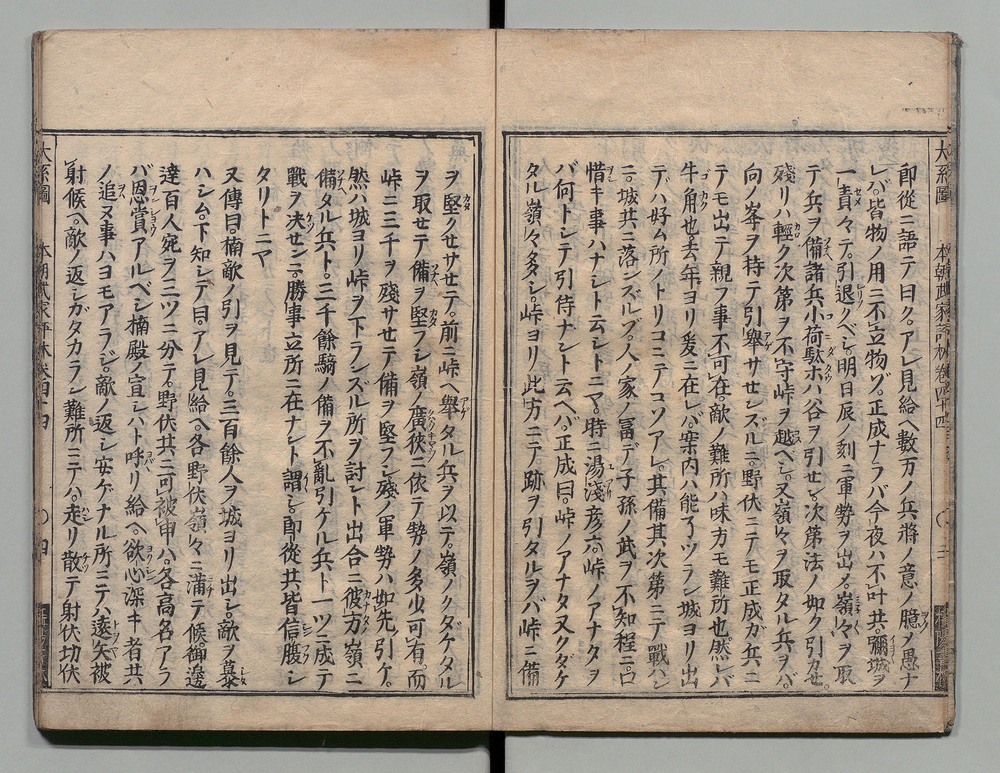 即從ニ語テ曰ク。アレ見給ヘ數万ノ兵將ノ意ノ臆メ愚ナ
レバ皆物ノ用ニ不立物ゾ。正成ナラバ今夜ハ不叶共。彌城ヲ
一責々テ。引退ノベシ。明日辰ノ刻ニ軍勢ヲ出メ嶺々ヲ取
テ兵ヲ備諸兵小荷駄ホハ谷ヲ引セ。次第法ノ如ク引カセ。
殘リハ輕ク次第ヲ不守峠ヲ越ベシ。又嶺々ヲ取タル兵ヲバ。
向ノ峯ヲ持テ引擧サセンズルニ。野伏ニテモ正成ガ兵ニ
テモ出テ親フ事不可在。敵ノ難所ハ味方モ難所也。然レバ
牛角也去年ヨリ爰ニ在レバ。案内ハ能了ツラン城ヨリ出
テバ好ム所ノトリコニテコソアレ。其備其次第ニテ戰ハン
ニ。城共ニ落ンズルゾ。人ノ家ノ冨デ子孫ノ武ヲ不知程ニ。口
惜キ事ハナシト云シトニマ。時ニ湯淺彦六。峠ノアナタヲ
バ何トシテ引侍ナント云ヘバ。正成曰。峠ノアナタ又クダケ
タル嶺々多シ。峠ヨリ此方ニテ跡ヲ引タルヲバ峠ニ備
大系圖 本朝武家評林卷四十四 ○ 三
ヲ堅クサセテ。前ニ峠ヘ擧タル兵ヲ以テ。嶺ノクダケタル
ヲ取セテ備ヲ堅ラシ嶺ノ廣狹ニ依テ勢ノ多少可有。而
峠ニ三千ヲ殘サセテ備ヲ堅ラシ殘ノ軍勢ハ如先引ケ。
然ハ城ヨリ峠ヲ下ランズル所ヲ討ント出合ニ彼方嶺ニ
備タル兵ト。三千餘騎ノ備ヲ不亂引ケル兵ト一ツニ成テ
戰ヲ決センニ。勝事立所ニ在ナント謂シ。即從共皆信腹シ
タリトニマ
又傳曰。楠敵ノ引ヲ見テ。三百餘人ヲ城ヨリ出シ。敵ヲ慕
ハシム。下知シテ曰。アレ見給ヘ各野伏嶺々ニ滿テ候。御邊
達百人宛ヲ三ツニ分テ。野伏共ニ可被申ハ。各高名アラ
バ恩賞アルベシ楠殿ノ宣シハト呼リ給ヘ。欲心深キ者共
ノ追ヌ事ハヨモアラジ。敵ノ返シ安ゲナル所ニテハ遠矢被
射候ヘ。敵ノ返シガタカラン難所ニテハ。走リ散テ射伏切伏
大系圖 本朝武家評林卷四十四 ○ 四